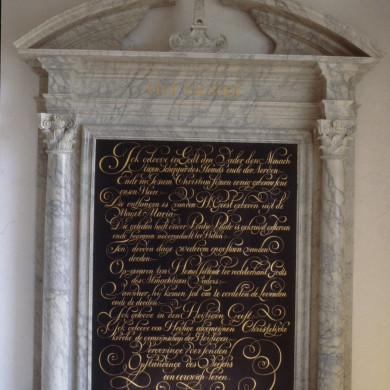 Ick geloove in Godt den Vader den Almach
tigen Schepper des Hemels ende der Aerden
Ende in Jesum Christum Sijnen eenig gebooren Sone
onsen Heere
Die ontfangen is van den H Geest gebooren uit de
Maget Maria
Die geleden heeft onder Pilato is gekruist gestorven
ende begraven nedergedaelt ter Hellen
Ten derden dage wederom opgestaen van den
dooden
Opgevaren ten Hemel sittende ter rechterhant Gods
des Almachtigen Vaders
Van waer hij komen sal om te oordelen de levenden
ende de dooden
Ick geloove in den Heyligen Geest
Ick geloove een Heylige algemeynen Christelijcke
kercke de gemeynschap der Heyligen
Vergevinge der sonden
Opstandinge des Vleyschs
een eeuwigh leven